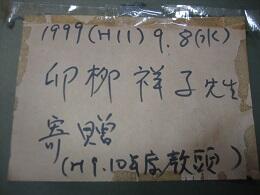 1999(H11) 9.8(水)
卯柳 祥子 先生
寄贈
(H9.10年度教頭)